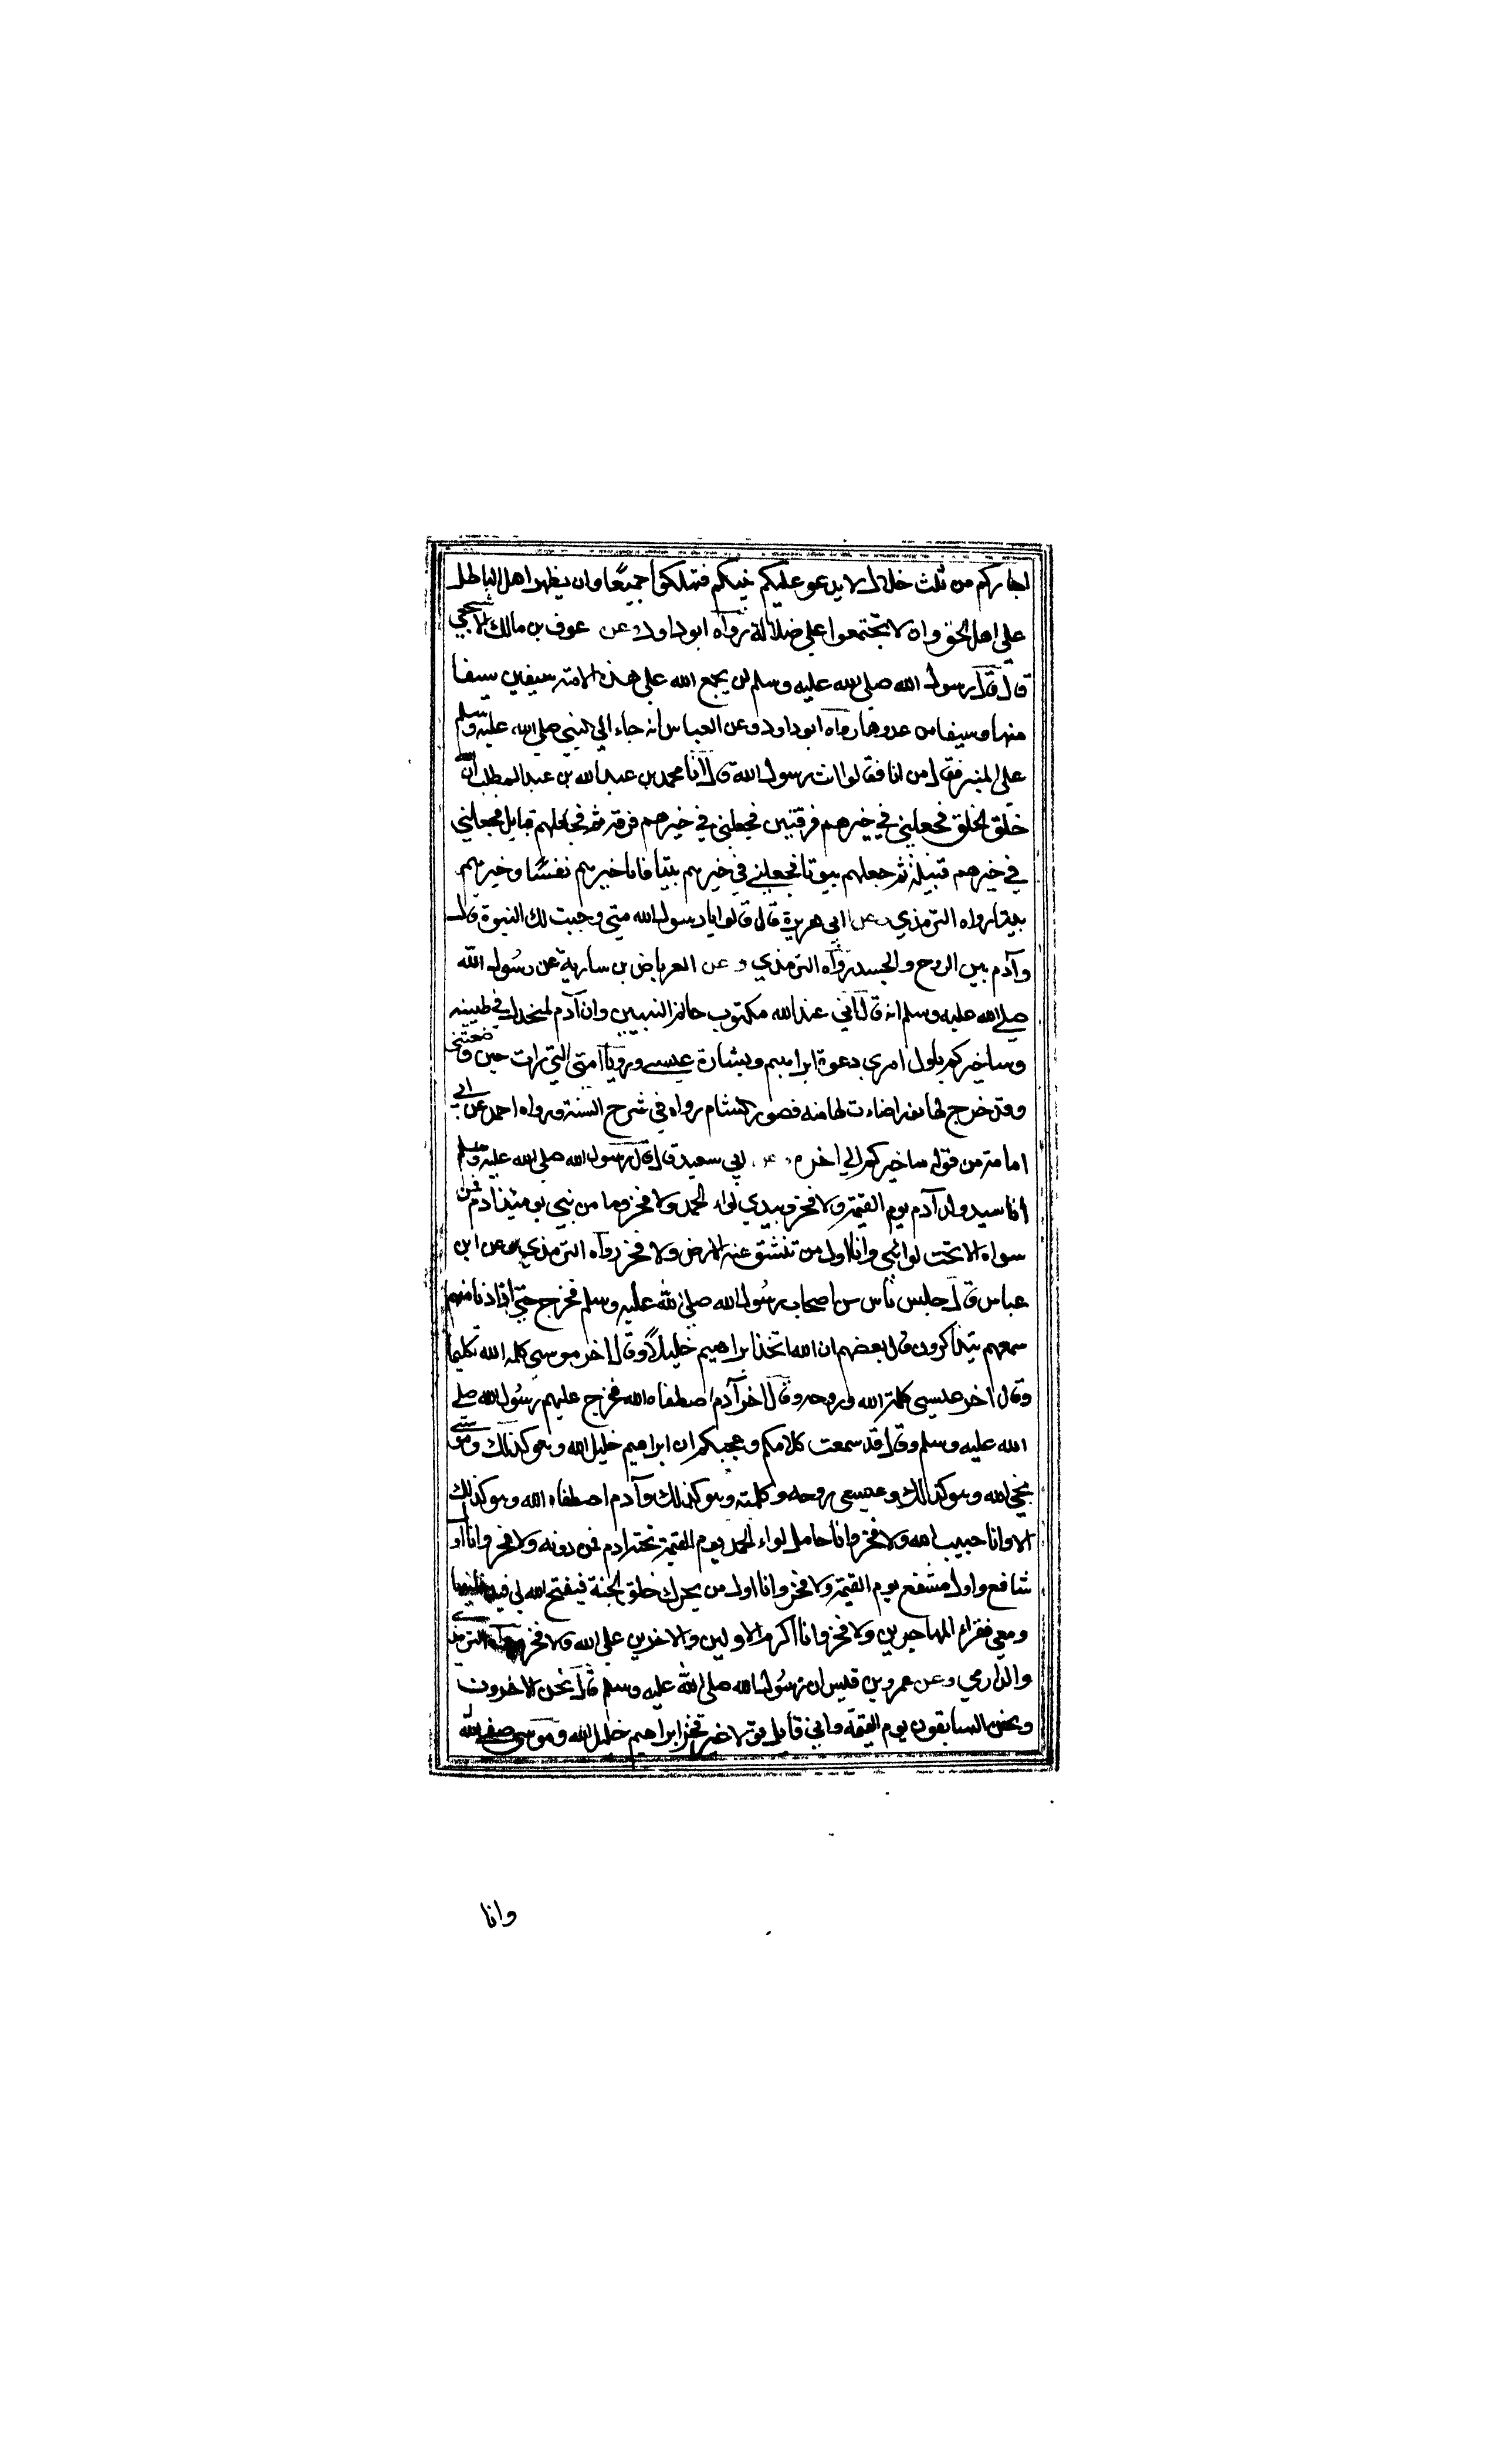 اجاركم من ثلث خلال لا يدعو عليكم نبيكم فتهلكوا جميعًا وان يظهر اهل الباطل
على اهل الحق وان لا تجتمعوا على ضلالة رواه ابوداود وعن عوف بن مالك الاشجعي
قال قال رسول الله صلى الله عليه وسلم لن يجمع الله على هذه الامة سيفين سيفا
منها وسيفا من عدوها رواه ابوداود وعن العباس انه جاء الى النبي صلى الله عليه وسلم
على المنبر فقال من انا فقالوا انت رسول الله قال انا محمد بن عبد الله بن عبد المطلب ان الله
خلق الخلق فجعلني في خيرهم فرقتين فجعلني في خيرهم فرقة ثم جعلهم قبايل فجعلني
في خيرهم قبيلة ثم جعلهم بيوتا فجعلني في خيرهم بيتا فانا خيرهم نفسًا وخيرهم
بيتا رواه الترمذي وعن ابي هريرة قال قالوا يا رسول الله متى وجبت لك النبوة قال
وآدم بين الروح والجسد رواه الترمذي وعن العرباض بن سارية عن رسول الله
صلى الله عليه وسلم انه قال اني عند الله مكتوب خاتم النبيين وان آدم لمنجدل في طينته
وساخبركم باول امري دعوة ابراهيم وبشارة عيسى ورؤيا امي التي رات حين وضعتني
وقد خرج لها نور اضاءت لها منه قصور الشام رواه في شرح السنة ورواه احمد عن ابي
امامة من قوله ساخبركم الى اخره وعن ابي سعيد قال قال رسول الله صلى الله عليه وسلم
انا سيد ولد آدم يوم القيمة ولا فخر وبيدي لواء الحمد ولا فخر وما من نبي يومئذ آدم فمن
سواه الا تحت لوائي وانا اول من تنشق عنه الارض ولا فخر رواه الترمذي وعن ابن
عباس قال جلس ناس من اصحاب رسول الله صلى الله عليه وسلم فخرج حتى اذا دنا منهم
سمعهم يتذاكرون قال بعضهم ان الله اتخذ ابراهيم خليلاً وقال اخر موسى كلمه الله تكليما
وقال اخر عيسى كلمة الله وروحه وقال اخر آدم اصطفاه الله فخرج عليهم رسول الله صلى
الله عليه وسلم وقال قد سمعت كلامكم وعجبكم ان ابراهيم خليل الله وهو كذلك وموسى
نجي الله وهو كذلك وعيسى روحه وكلمته وهو كذلك وآدم اصطفاه الله وهو كذلك
الا وانا حبيب الله ولا فخر وانا حامل لواء الحمد يوم القيمة تحته آدم فمن دونه ولا فخر وانا اول
شافع واول مشفع يوم القيمة ولا فخر وانا اول من يحرك حلق الجنة فيفتح الله لي فيدخلنيها
ومعي فقراء المهاجرين ولا فخر وانا اكرم الاولين والاخرين على الله ولا فخر رواه الترمذي
والدارمي وعن عمرو بن قيس ان رسول الله صلى الله عليه وسلم قال نحن الاخرون
ونحن السابقون يوم القيمة واني قايل قولا غير فخر ابراهيم خليل الله وموسى صفي الله
وانا